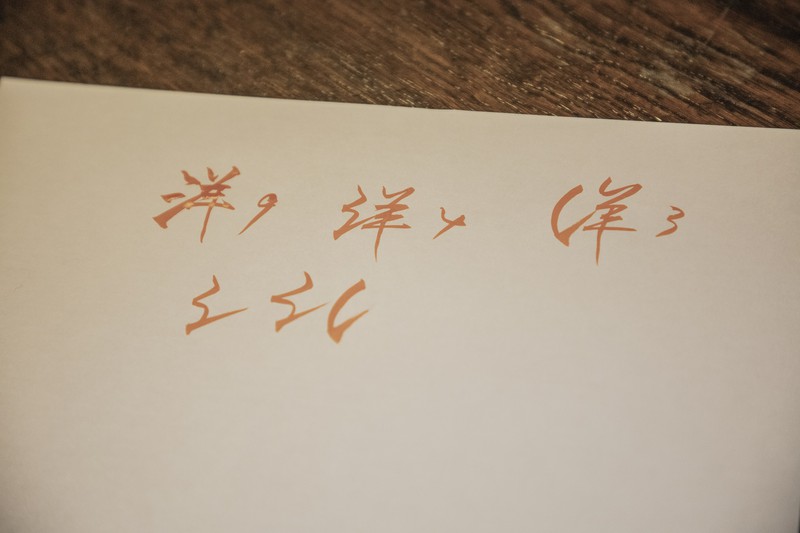 洋9 洋4 洋3